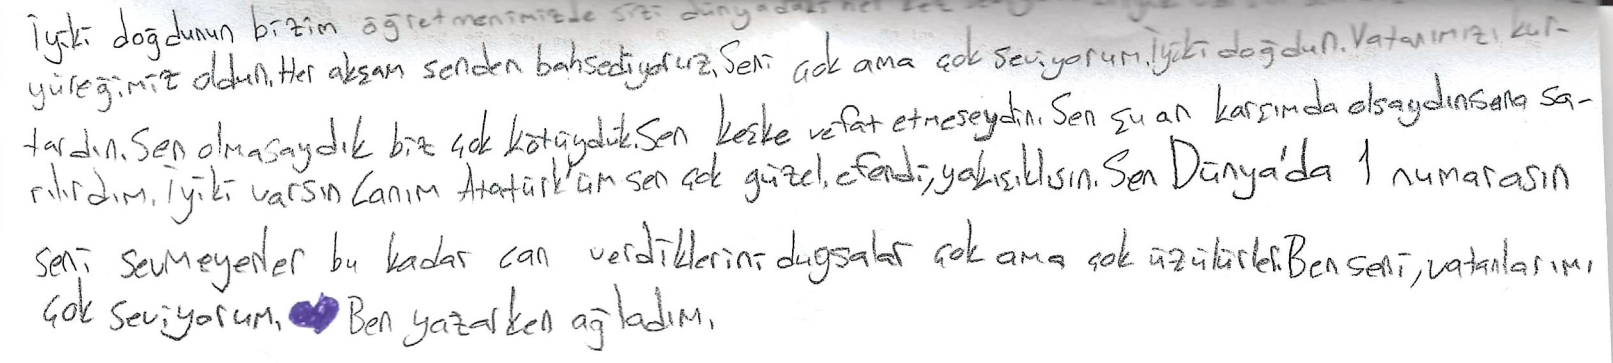 İyiki doğdunun bizim öğretmenimizde sizi dünyadaki her
yüreğimiz oldun. Her akşam senden bahsediyoruz. Seni çok ama çok seviyorum. İyiki doğdun. Vatanımızı kur-
tardın. Sen olmasaydık biz çok kötüydük. Sen keşke vefat etmeseydin. Sen şu an karşımda olsaydın sana sa-
rılırdım. İyiki varsın Canım Atatürk'üm sen çok güzel, efendi, yakışıklısın. Sen Dünya'da 1 numarasın
seni sevmeyenler bu kadar can verdiklerini duysalar çok ama çok üzülürler. Ben seni, vatanlarımı
çok seviyorum. 💜 Ben yazarken ağladım.